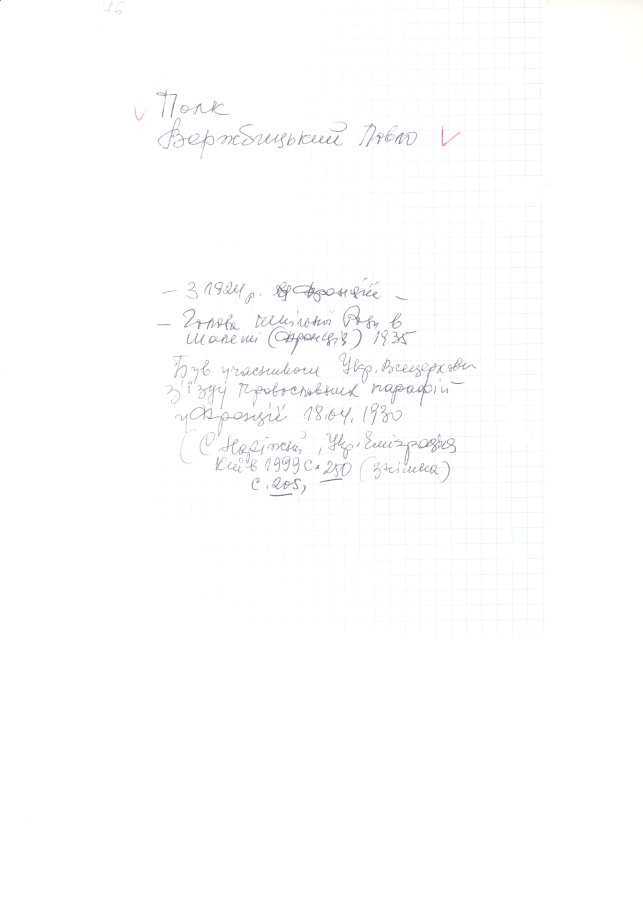 75
Полк
Вержбицький Павло
– З 1924 р. у Франції –
– Голова шкільної Ради в
Шалеті (Франція) 1935
Був учасником Укр. 
з'їзду Православних парафій
у Франції 18.04.1930
(С. Наріжний, Укр. Еміграція
Київ 1999 с. 250 (знімка)
с. 205,